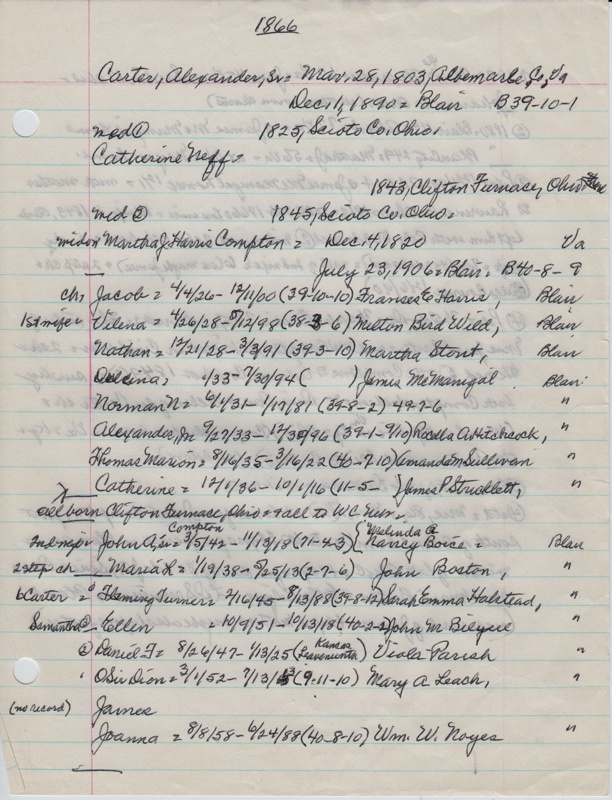 1866
Carter, Alexander, Sr = Mar. 28, 1803, Albemarle, Co, Va
Dec. 1, 1890 = Blair B39-10-1
med ① 1825, Scioto Co. Ohio.
Catherine Neff =
1843, Clifton Furnace, Ohio
med ② 1845, Scioto Co. Ohio.
widow Martha J Harris Compton = Dec. 4, 1820 Va
July 23, 1906 = Blair. B40-8-9
ch. Jacob = 4/4/26 - 12/11/00 (39-10-10) Franses E Harris, Blair
1st wife = Vilena = 4/26/28 - 5/12/98 (38-3-6) Melton Bird Wild, Blair
Nathan = 12/21/28 - 3/3/91 (39-3-10) Martha Stout, Blair
4/33 - 7/30/94 ( ) James McManigal Blair
Norman N = 6/1/31 - 1/17/81 (39-8-2) 49-7-6 "
Alexander, Jr 9/27/33 - 12/30/96 (39-1-9/10) Roella A Hitchcock, "
Thomas Marion = 8/16/35 - 3/16/22 (40-7-10) Amanda M Sullivan "
Catherine = 12/1/36 - 10/1/16 (11-5- ) James P Stricklett, "
all born Clifton Furnace, Ohio = all to W.C. Nebr.
Compton {Malinda A
2nd major John A, Sr = 3/5/42 - 11/13/18 (71-4-3) {Nancy Boice = Blair
2 step ch Maria K = 1/19/38 - 5/25/13 (2-7-6) John Boston, "
6 Carter = Fleming Turner = 2/16/45 - 8/13/88 (39-8-12) Sarah Emma Halstead, "
Samantha Ellen = 10/9/51 - 10/13/18 (40-2-2) John M Bilyeu "
Daniel F = 8/26/47 - 7/13/25 (Kansas Leavenworth) Viola Parish "
O Sir Dion = 3/1/52 - 7/13/13 (9-11-10) Mary A Leach, "
(no record) James
Joanna = 8/8/58 - 6/24/88 (40-8-10) Wm. W. Noyes "